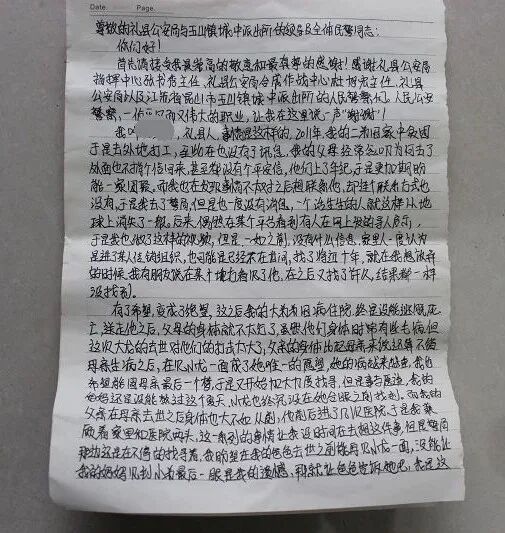 Date: Page:
尊敬的礼县公安局与玉山镇城中派出所的领导及全体民警同志:
你们好!
首先请接受我最崇高的敬意和最真挚的感谢!感谢礼县公安局
指挥中心张书秀主任、礼县公安局合成作战中心杜 主任、礼县
公安局以及江苏省昆山市玉山镇城中派出所的人民警察们,人民公安
警察,一份 而又伟大的职业,让我在这里说一声"谢谢"!
我叫 ,礼县人,事情是这样的,2011年,我的二老因家中贫困
于是去外地打工,至此在也没有了讯息,我的父母经常念叨为何去了
外面也不捎个信回来,甚至都没有个平安信,他们上了年纪,于是更加期盼
能一家团聚。而我也在发现事情不太对之后想联系他,却连个联系方式也
没有,于是我去了警局,但是也一度没有消息,一个活生生的人就这样从地
球上消失了一般。后来,偶然在某个平台看到有人在网上发的寻人启示,
于是我也做了这样的视频,但是一如之前,没有什么信息,家里人一度认为
是进了某人组织,也可能是已经不在世间,找了将近十年,就在我想放弃
的时候,我有朋友说在某个地方看见了他,在之后又找了许久,结果都一样
没找到。
有了希望,变成了绝望,这之后我的大老因病住院,终是没能逃脱死
亡,送走他之后,父母的身体就不太好了,虽然他们身体时常有些毛病,但
这次大龙的去世对他们的打击太大了,父亲的身体比起母亲来说还算不错
母亲生病之后,在见小龙一面成了她唯一的愿望,她的病越来越重,我也
希望能圆母亲最后一个梦,于是又开始加大力度找寻,但是事与愿违,我的
妈妈还是没能熬过这个夏天,小龙也终究没在她合眼之前找到。而我的
父亲在母亲去世之后身体也大不如从前,他前后进了几次医院,于是我兼
顾着家里和医院两头,这一系列的事情让我没时间在去想这件事,但是警局
那边还是在不停的找寻着,我盼望在我的爸爸去世之前能再见小龙一面,没能让
我的妈妈见到小老最后一眼是我的遗憾,那就让爸爸告诉她吧,我是这